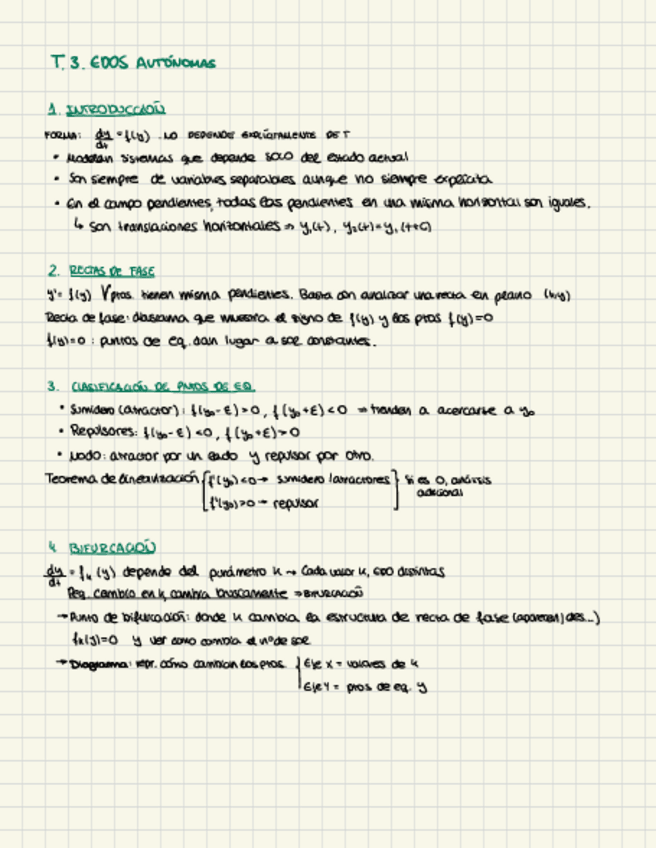 T. 3. EDOS AUTÓNOMAS
1. INTRODUCCIÓN
FORMA: dy/dt = f(y) . NO DEPENDE EXPLÍCITAMENTE DE T
• Modelan sistemas que depende SOLO del estado actual
• Son siempre de variables separables aunque no siempre explícita
• En el campo pendientes, todas las pendientes en una misma horizontal son iguales.
↳ Son translaciones horizontales => y₁(t), y₂(t)=y₁(t+C)
2. RECTAS DE FASE
y'= f(y) ∀ptos. tienen misma pendientes. Basta con analizar una recta en plano (t,y)
Recta de fase: diagrama que muestra el signo de f(y) y los ptos f(y)=0
f(y)=0 : puntos de eq. dan lugar a sol constantes.
3. CLASIFICACIÓN DE PUNTOS DE EQ.
• Sumidero (atractor): f(y₀-ε)>0, f(y₀+ε)<0 => tienden a acercarse a y₀
• Repulsores: f(y₀-ε)<0, f(y₀+ε)>0
• Nodo: atractor por un lado y repulsor por otro.
Teorema de linealización [f'(y₀)<0 → sumidero /atractores] Si es 0, análisis
adicional
f'(y₀)>0 → repulsor
4. BIFURCACIÓN
dy/dt = fₖ(y) depende del parámetro k → Cada valor k, EDO distintas
Peq. cambio en k, cambia bruscamente => BIFURCACIÓN
→ Punto de bifurcación: donde k cambia la estructura de recta de fase (aparecen/des...)
fₖ(y)=0 y ver como cambia el nº de sol
→ Diagrama: repr. cómo cambian los ptos. { Eje X = valores de k
Eje Y = ptos de eq. y